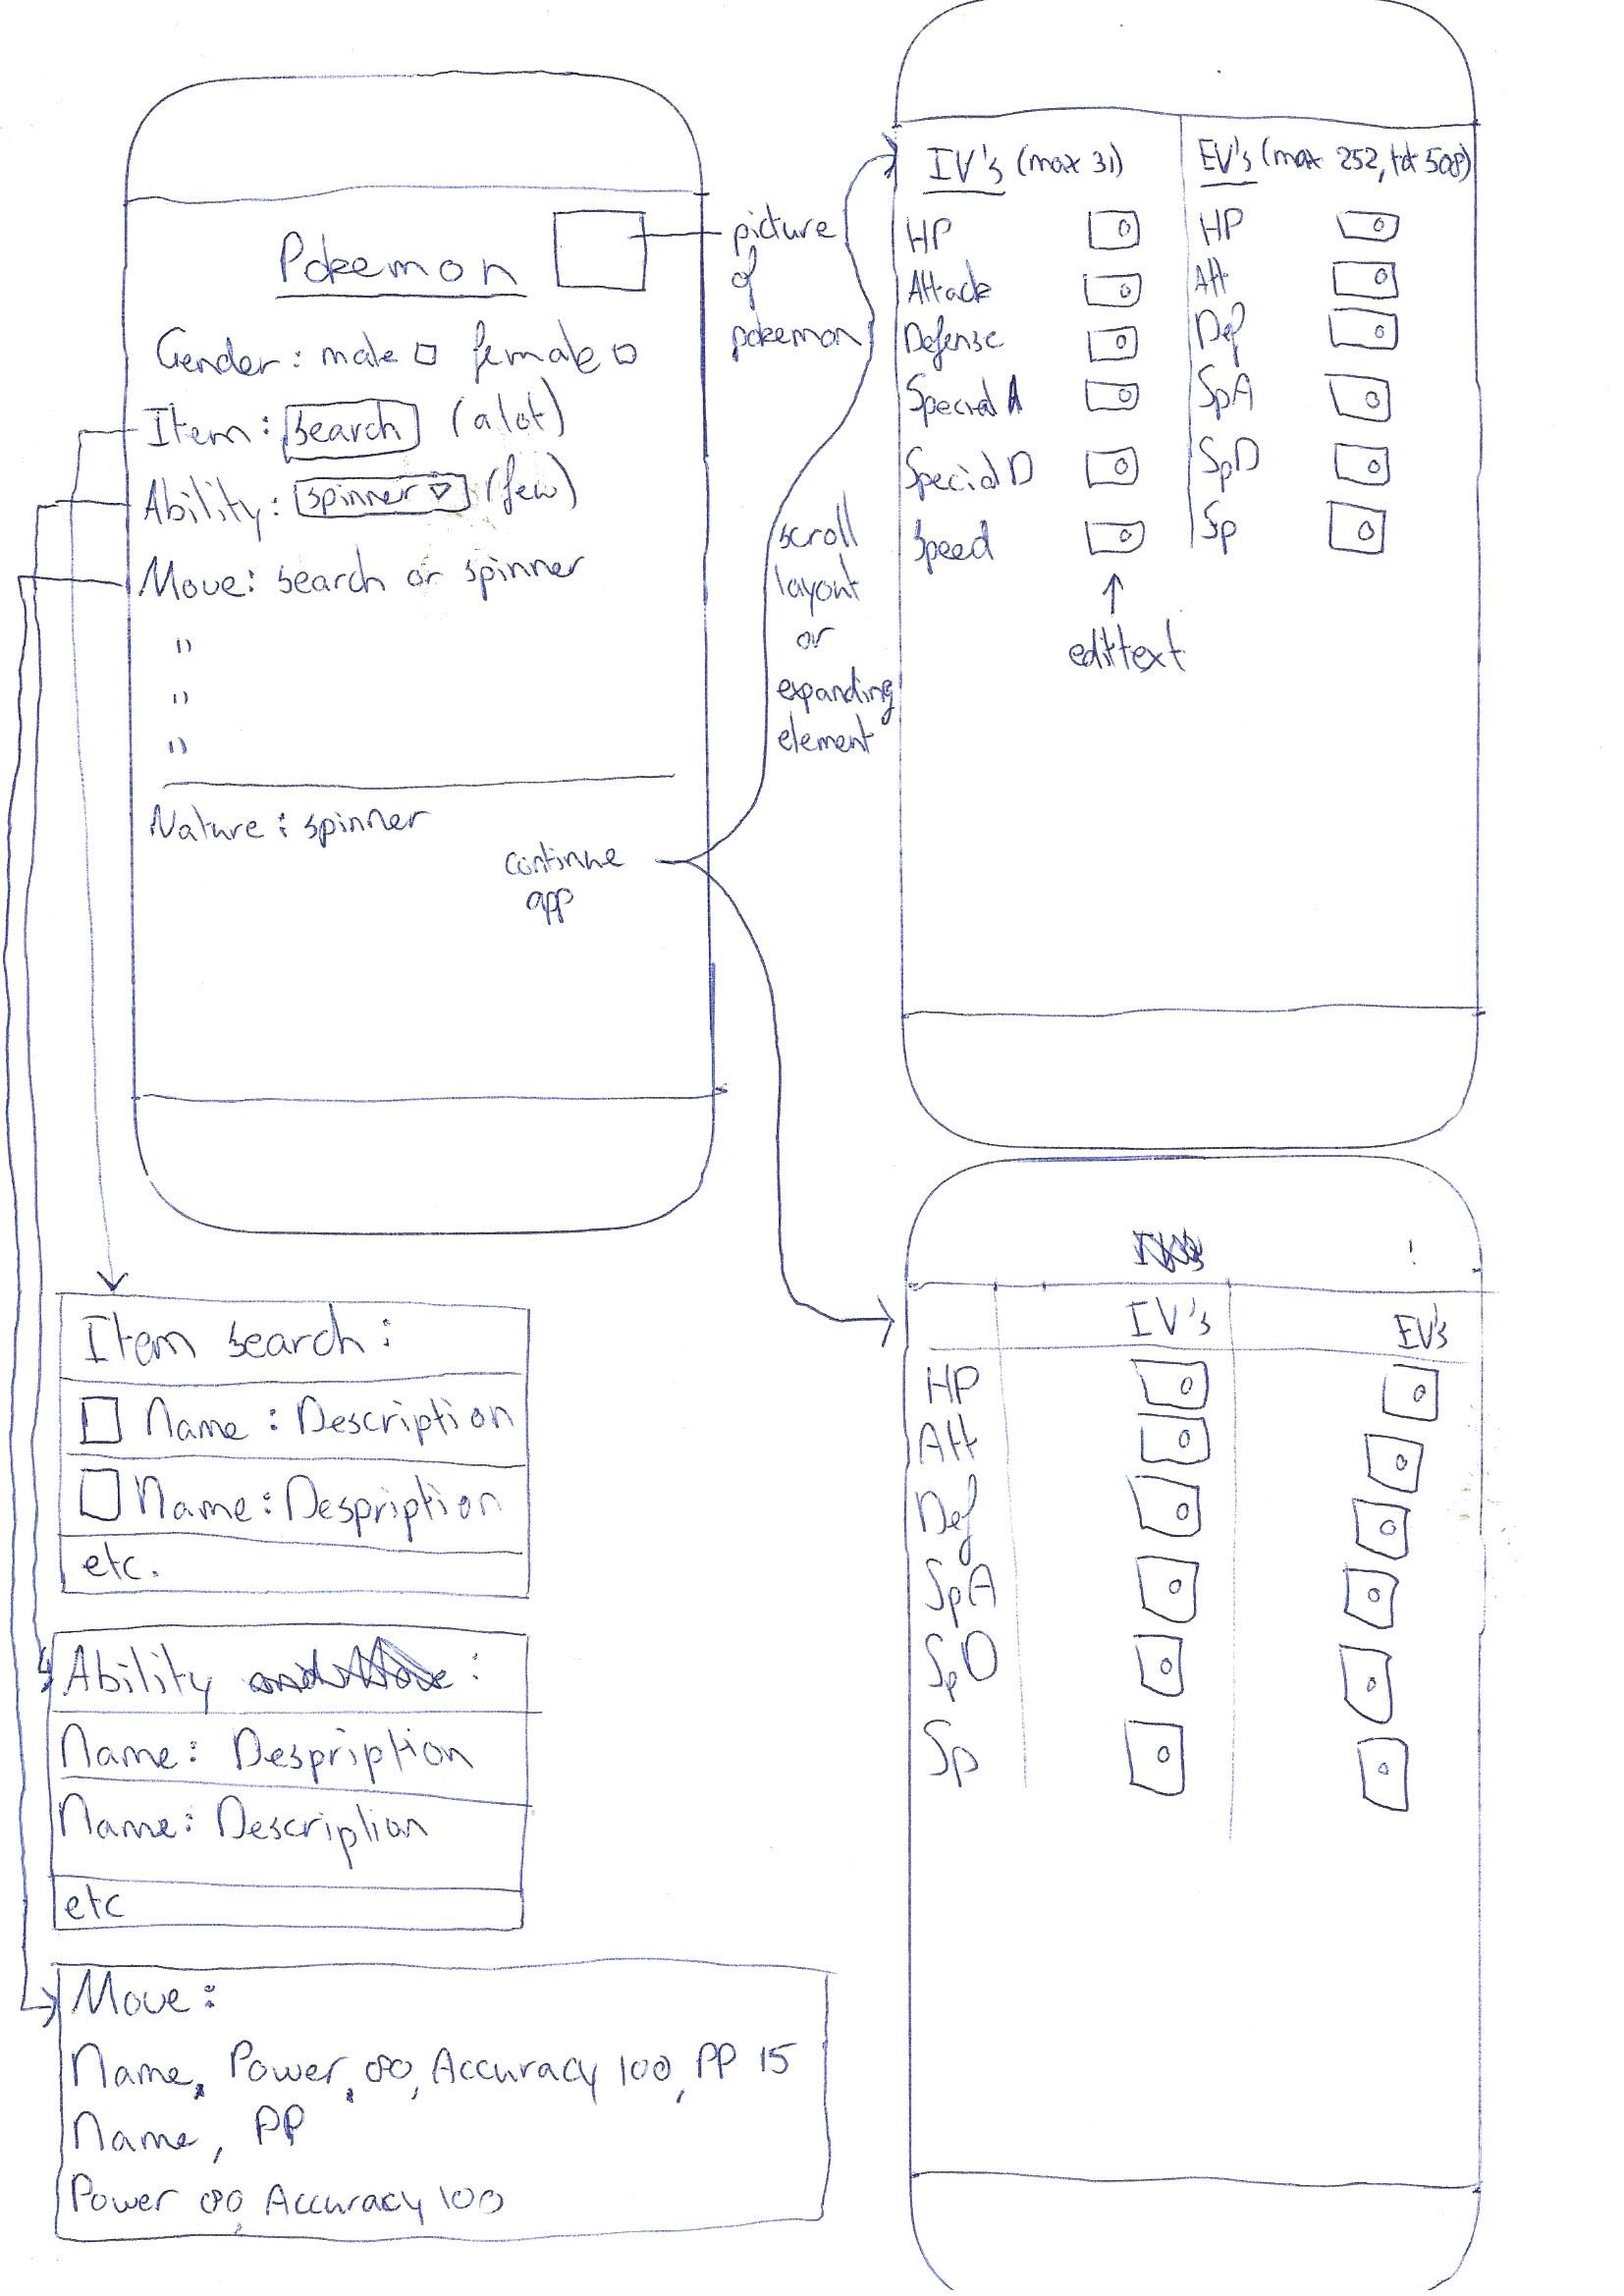 Pokemon
picture
of
pokemon
Gender: male female
Item: search (a lot)
Ability: spinner (few)
Move: search or spinner
"
"
"
Nature: spinner
continue
app
scroll
layout
or
expanding
element
IV's (max 31)
HP 0
Attack 0
Defense 0
Special A 0
Special D 0
Speed 0
edittext
EV's (max 252, tot 508)
HP 0
Att 0
Def 0
SpA 0
SpD 0
Sp 0
IV's EV's
HP 0 0
Att 0 0
Def 0 0
SpA 0 0
SpD 0 0
Sp 0 0
Item search:
Name: Description
Name: Despription
etc.
Ability :
Name: Despription
Name: Description
etc
Move:
Name, Power, ∞, Accuracy 100, PP 15
Name, PP
Power ∞, Accuracy 100